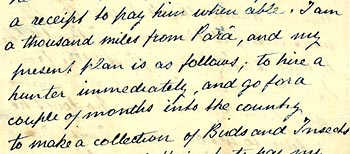 a receipt to pay him when able. I am
a thousand miles from Pará, and my
present plan is as follows; to hire a
hunter immediately, and go for a
couple of months into the country
to make a collection of Birds and Insects